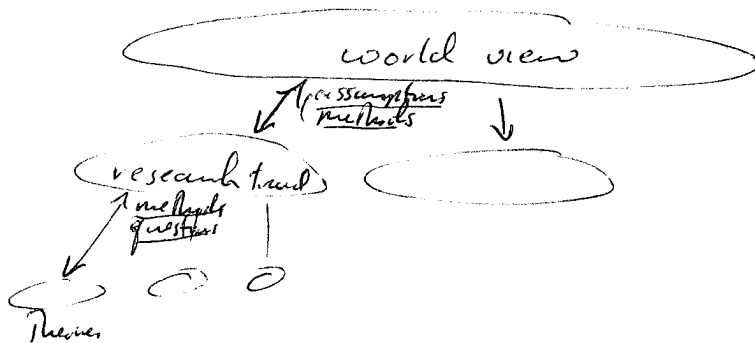 world view
assumptions
methods
research trad
methods
questions
Theories